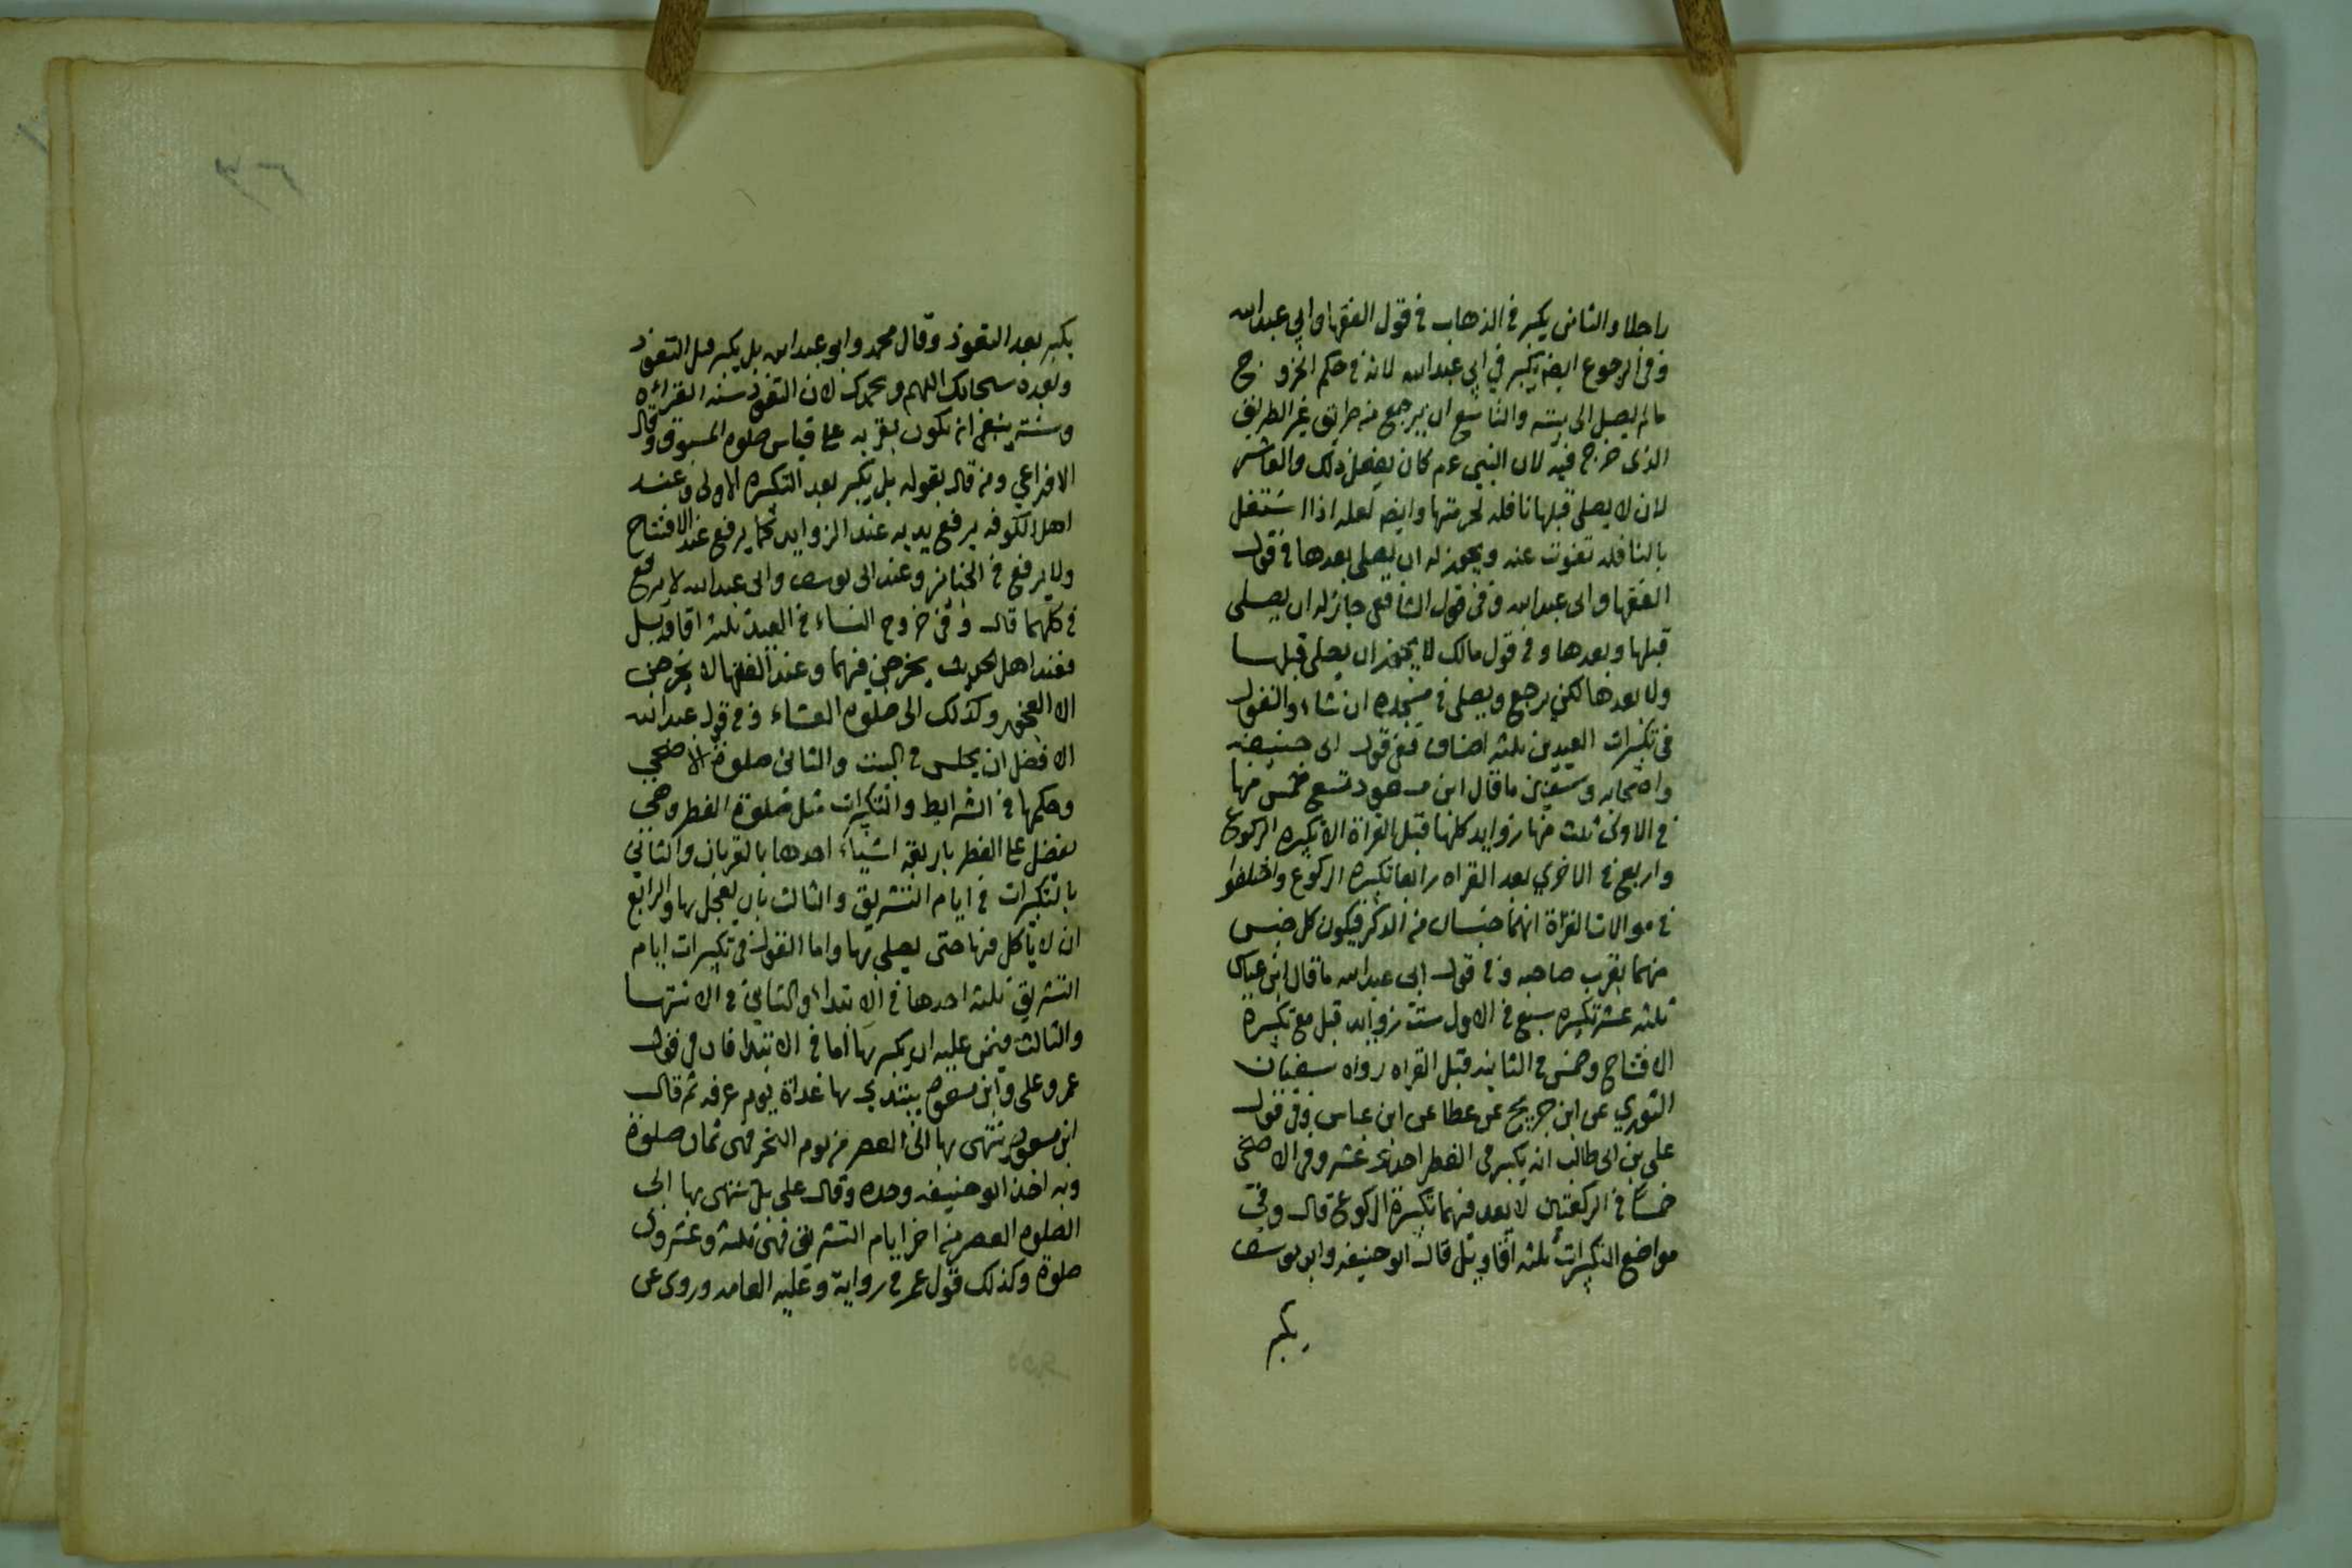 راجلا والثامن يكبر في الذهاب في قول الفقها وابي عبدالله
وفي الرجوع ايضا يكبر في ابي عبدالله لانه في حكم الخروج
مالم يصل الى بيته والتاسع ان يرجع من طريق غير الطريق
الذى خرج فيه لان النبي عم كان يفعل ذلك والعاشر
لان لا يصلى قبلها نافله لحرمتها وايضا لعله اذا اشتغل
بالنافله تفوت عنه ويجوز له ان يصلى بعدها في قول
الفقها وابى عبدالله وفى قول الشافعى جائز له ان يصلى
قبلها وبعدها وفي قول مالك لا يجوز ان يصلى قبلها
ولا بعدها لكن يرجع ويصلى في مسجده ان شاء والقول
فى تكبيرات العيدين ثلثه اصناف ففى قول ابى حنيفه
واصحابه وسفين ما قال ابن مسعود تسع خمس منها
في الاولى ثلث منها زوايد كلها قبل القراة الا تكبيره الركوع
واربع في الاخرى بعد القراه رابعها تكبيره الركوع واختلفوا
في موالات القراة انهما جنسان من الذكر فيكون كل جنس
منهما بقرب صاحبه وفي قول ابى عبدالله ما قال ابن عباس
ثلثه عشر تكبيره سبع في الاول ست زوايد قبل مع تكبيرة
الافتتاح وخمس في الثانيه قبل القراه رواه سفيان
الثوري عن ابن جريج عن عطا عن ابن عباس وفى قول
على بن ابى طالب انه يكبر فى الفطر احدى عشر وفى الاضحى
خمسا في الركعتين لا يعد فيهما تكبيرة الركوع قال وفي
مواضع التكبيرات ثلثه اقاويل قال ابو حنيفه وابو يوسف
يكبر
يكبر بعد التعوذ وقال محمد وابو عبدالله بل يكبر قبل التعوذ
وبعده سبحانك اللهم وبحمدك لان التعوذ سنه القرائه
وسنته ينبغى ان تكون بقربه على قياس صلوه المسبوق وقال
الاوزاعي ومن قال بقوله بل يكبر بعد التكبيره الاولى وعند
اهل الكوفه يرفع يديه عند الزوايد كما يرفع عند الافتتاح
ولا يرفع في الجنائز وعند ابى يوسف وابى عبدالله لا يرفع
في كلهما قال وفى خروج النساء في العيد ثلثه اقاويل
فعند اهل الحديث يخرجن فيهما وعند الفقها لا يخرجن
الا العجوز وكذلك الى صلوه العشاء وفي قول عبدالله
الافضل ان يجلس في البيت والثانى صلوة الاضحى
وحكمها في الشرايط والتكبيرات مثل صلوة الفطر وهي
يفضل على الفطر باربعة اشياء احدها بالقربان والثاني
بالتكبيرات في ايام التشريق والثالث بان يعجل بها والرابع
ان لا ياكل منها حتى يصلى بها واما القول في تكبيرات ايام
التشريق ثلثه احدها في الابتداء والثاني في الانتها
والثالث فيمن عليه ان يكبر بها اما في الابتدا فان فى قول
عمر وعلى وابن مسعود يبتدي بها غداة يوم عرفه ثم قال
ابن مسعود ينتهى بها الى العصر من يوم النحر فهى ثمان صلوة
وبه اخذ ابو حنيفه وحده وقال على بل ينتهى بها الى
الصلوه العصر من اخر ايام التشريق فهى ثلثه وعشرون
صلوة وكذلك قول عمر في رواية وعليه العامه وروى عن